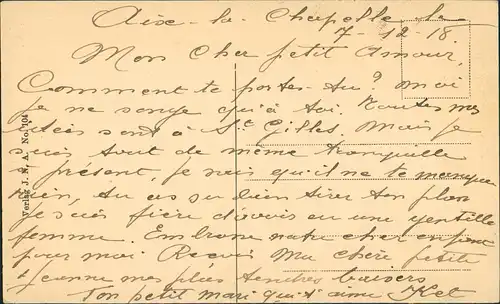 Aix-la-Chapelle le
7-12-18
Mon cher petit Amour,
Comment te portes-tu? moi
je ne songe qu'à toi. Toutes mes
idées sont à St Gilles. Mais je
suis tout de même tranquille
à présent, je sais qu'il ne te manque
rien, tu as su bien tirer ton plan
je suis fière d'avoir eu une gentille
femme. Embrasse notre cher enfant
pour moi Reçois Ma chère petite
Jeanne mes plus tendres baisers
Ton petit mari qui t'aime
Verlag J. N. A. No. 104